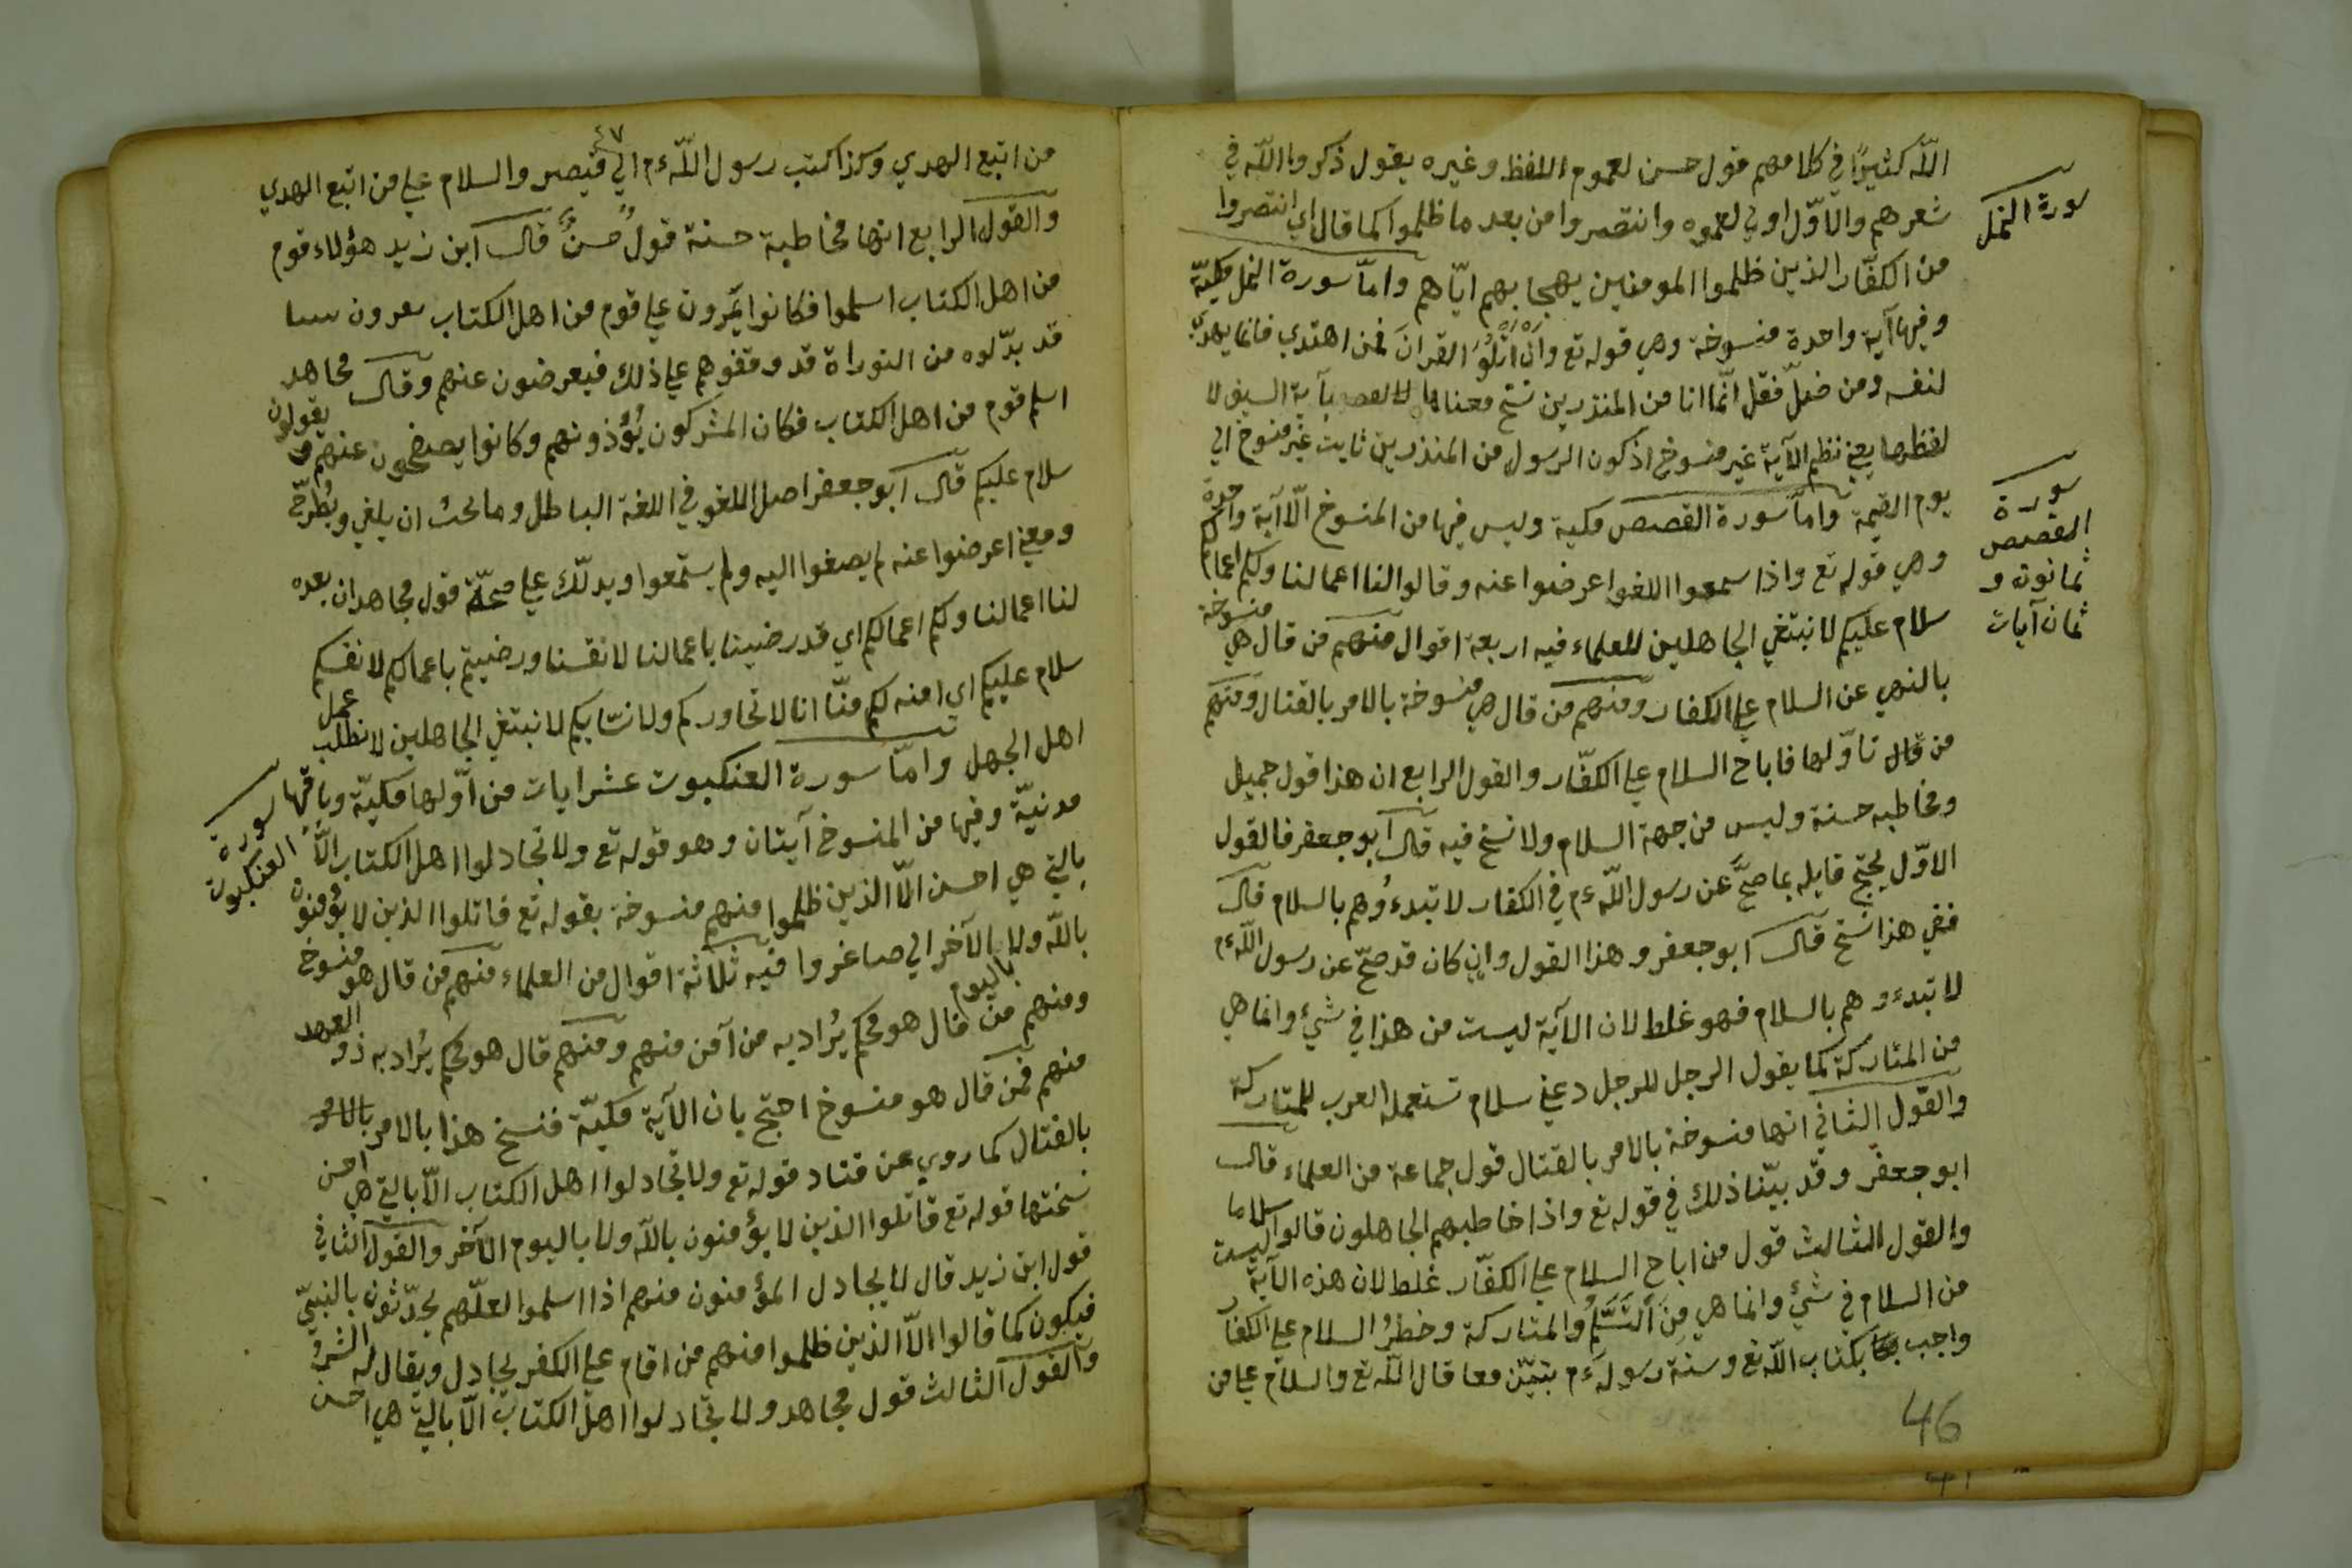 الله كثيرًا في كلامهم قول حسن لعموم اللفظ وغيره يقول ذكروا الله في
شعرهم والاوّل اولي لعمومه وانتصروا من بعد ما ظلموا كما قال اي انتصروا
سورة النمل
من الكفّار الذين ظلموا المومنين يهجا بهم ايّاهم وامّا سورة النمل مكيّة
وفيها آية واحدة منسوخة وهي قوله تع وان اتلو القران فمن اهتدي فانما يهتدي
لنفسه ومن ضلّ فقل انّما انا من المنذرين نسخ معناها بآية السيف لا
لفظها يعني نظم الآية غير منسوخ اذ كون الرسول من المنذرين ثابت غير منسوخ الي
يوم القيمة وامّا سورة القصص مكية وليس فيها من المنسوخ الّا آية واحدة
سورة
القصص
ثمانون و
ثمان آيات
وهي قوله تع واذا سمعوا اللغو اعرضوا عنه وقالوا لنا اعمالنا ولكم اعمالكم
سلام عليكم لا نبتغي الجاهلين للعلماء فيه اربعة اقوال منهم من قال هي منسوخة
بالنهي عن السلام علي الكفار ومنهم من قال هي منسوخة بالامر بالقتال ومنهم
من قال تاوّلها فاباح السلام علي الكفّار والقول الرابع ان هذا قول جميل
ومخاطبه حسنة وليس من جهة السلام ولا نسخ فيه قال ابو جعفر فالقول
الاوّل يحتج قايله بما صحّ عن رسول الله ءم في الكفار لا تبدءوهم بالسلام قال
ففي هذا نسخ قال ابو جعفر وهذا القول وان كان قد صحّ عن رسول الله ءم
لا تبدءوهم بالسلام فهو غلط لان الآية ليست من هذا في شيء وانما هي
من المتاركة كما يقول الرجل للرجل دعني سلام تستعمله العرب للمتاركة
والقول الثاني انها منسوخة بالامر بالقتال قول جماعة من العلماء قال
ابو جعفر وقد بيّنا ذلك في قوله تع واذا خاطبهم الجاهلون قالوا سلاما
والقول الثالث قول من اباح السلام علي الكفّار غلط لان هذه الآية ليست
من السلام في شيء وانما هي من التسلم والمتاركة وخطر السلام علي الكفار
واجب بكتاب الله تع وسنة رسوله ءم بتبيّن معا قال الله تع والسلام علي من
46
٤٧
من اتبع الهدي وكذا كتب رسول الله ءم الي قيصر والسلام علي من اتبع الهدي
والقول الرابع انها مخاطبة حسنة قول حسن قال ابن زيد هؤلاء قوم
من اهل الكتاب اسلموا فكانوا يمرون علي قوم من اهل الكتاب
قد بدّلوه من التوراة قد وقفوهم علي ذلك فيعرضون عنهم وقال مجاهد
اسلم قوم من اهل الكتاب فكان المشركون يؤذونهم وكانوا يصفحون عنهم و يقولون
سلام عليكم قال ابو جعفر اصل اللغو في اللغة الباطل وما يجب ان يلغي ويطرح
ومعني اعرضوا عنه لم يصغوا اليه ولم يستمعوا ويدلّك علي صحّة قول مجاهد ان بعده
لنا اعمالنا ولكم اعمالكم اي قد رضينا باعمالنا لانفسنا ورضيتم باعمالكم لانفسكم
سلام عليكم اي امنة لكم منّا انا لا نحاوركم ولا نسّابكم لا نبتغي الجاهلين لا نطلب عمل
اهل الجهل وامّا سورة العنكبوت عشر ايات من اوّلها مكيّة وباقيها
سورة
العنكبوت
مدنيّة وفيها من المنسوخ آيتان وهو قوله تع ولا تجادلوا اهل الكتاب الّا
بالتي هي احسن الّا الذين ظلموا منهم منسوخة بقوله تع قاتلوا الذين لا يؤمنون
بالله ولا باليوم الآخر الي صاغروا فيه ثلاثة اقوال من العلماء منهم من قال هو منسوخ
ومنهم من قال هو محكم يُراد به من آمن منهم ومنهم قال هو محكم يُراد به ذو العهد
منهم فمن قال هو منسوخ احتج بان الآية مكيّة فنسخ هذا بالامر بالامر
بالقتال كما روي عن قتاد قوله تع ولا تجادلوا اهل الكتاب الّا بالتي هي احسن
نسختها قوله تع قاتلوا الذين لا يؤمنون بالله ولا باليوم الآخر والقول الثاني
قول ابن زيد قال لا يجادل المؤمنون منهم اذا اسلموا لعلّهم يحدّثون بالنبيّ
فيكون كما قالوا الّا الذين ظلموا منهم من اقام علي الكفر يجادل ويقال له الشر
والقول الثالث قول مجاهد ولا تجادلوا اهل الكتاب الّا بالتي هي احسن